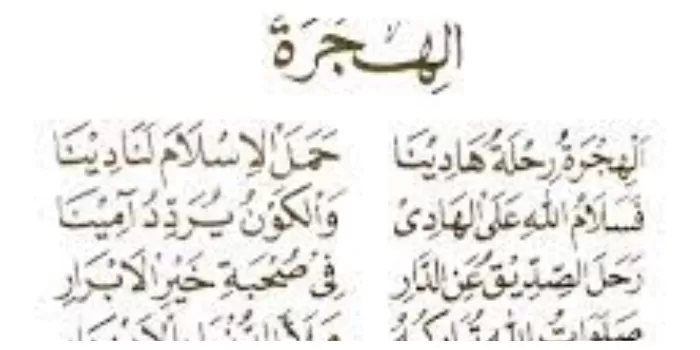 الْهِجْرَة
اَلْهِجْرَةُ رِحْلَةُ هَادِيْنَا حَمَلَ الْاِسْلَامَ لَنَا دِيْنَا
فَسَلَامُ اللهِ عَلَى الْهَادِىْ وَالْكَوْنُ يُرَدِّدُ آمِيْنَا
رَحَلَ الصِّدِّيْقُ عَنِ الدَّارِ فِىْ صُحْبَةِ خَيْرِ الْاَبْرَارِ
صَلَوَاتُ اللهِ تُبَارِكُهُ